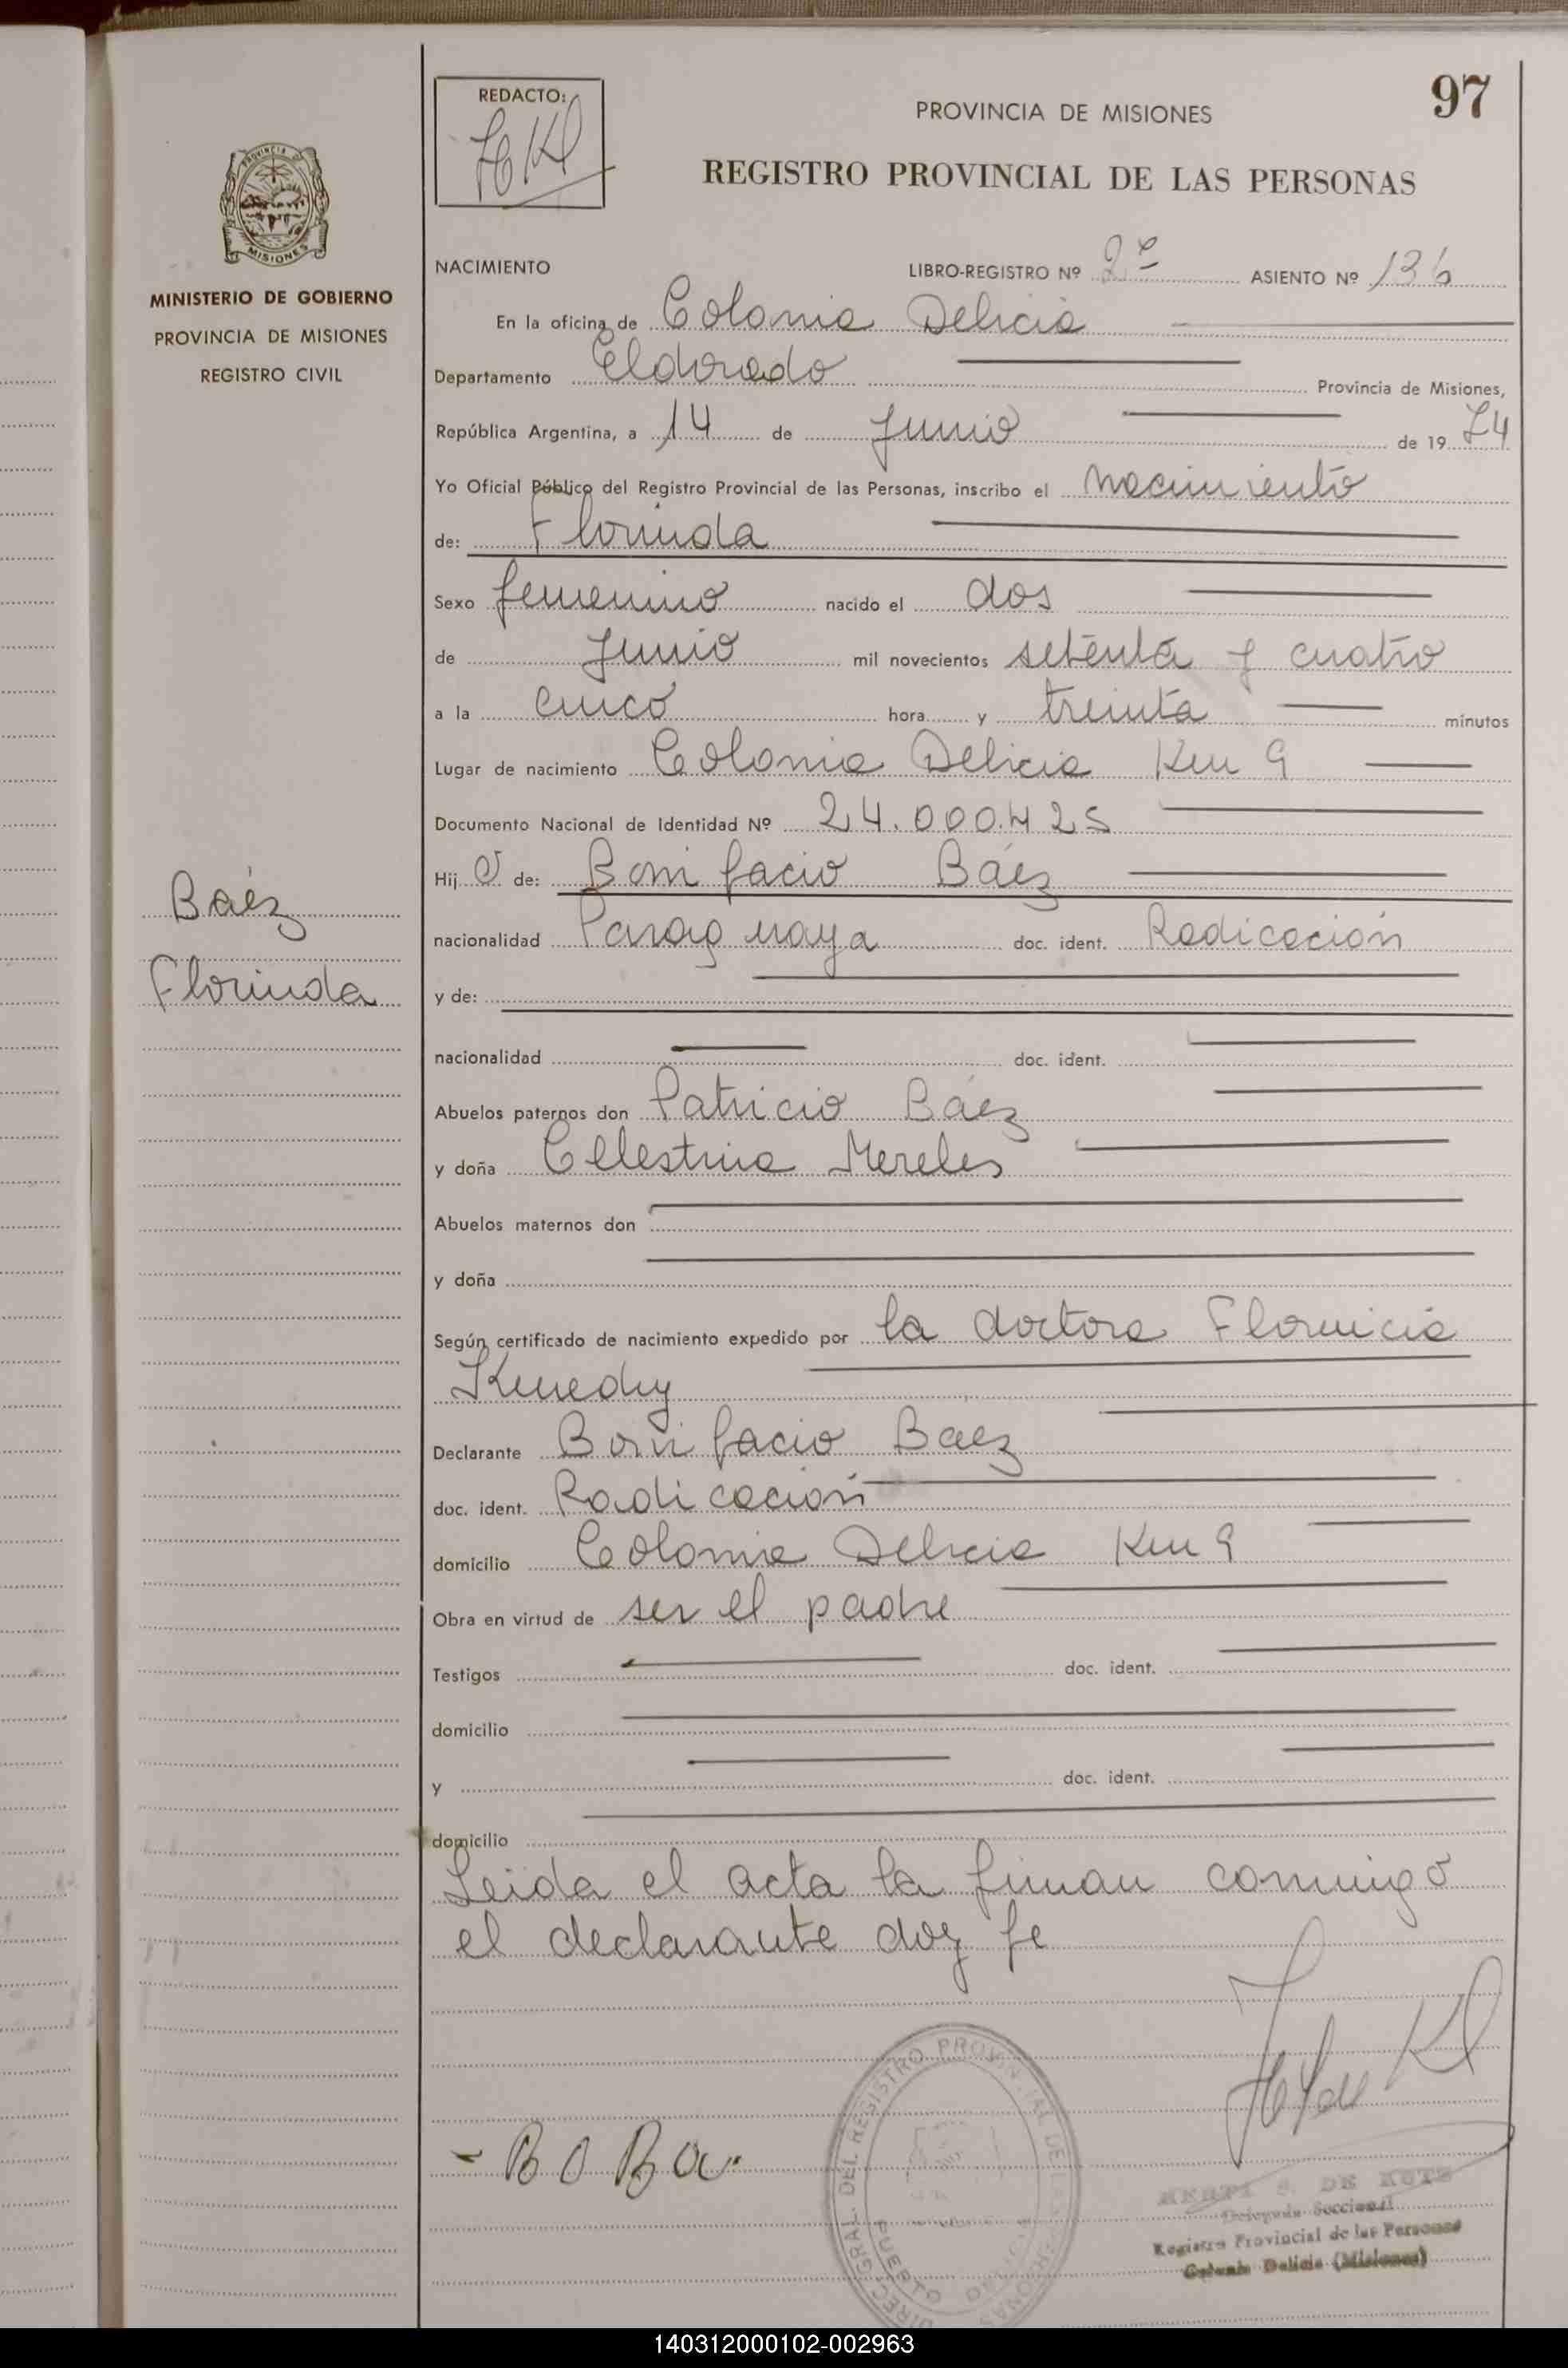 REDACTO:
97
PROVINCIA DE MISIONES
REGISTRO PROVINCIAL DE LAS PERSONAS
PROVINCIA DE
MISIONES
MINISTERIO DE GOBIERNO
PROVINCIA DE MISIONES
REGISTRO CIVIL
NACIMIENTO LIBRO-REGISTRO Nº 2º ASIENTO Nº 136
En la oficina de Colonia Delicia
Departamento Eldorado Provincia de Misiones,
República Argentina, a 14 de Junio de 19 74
Yo Oficial Público del Registro Provincial de las Personas, inscribo el nacimiento
de: Florinda
Sexo femenino nacido el dos
de Junio mil novecientos setenta y cuatro
a la cinco hora y treinta minutos
Lugar de nacimiento Colonia Delicia Km 9
Documento Nacional de Identidad Nº 24.000.425
Hij a de: Bonifacio Báez
Baéz
nacionalidad Paraguaya doc. ident. Radicación
Florinda
y de:
nacionalidad doc. ident.
Abuelos paternos don Patricio Báez
y doña Celestina Mereles
Abuelos maternos don
y doña
Según certificado de nacimiento expedido por la doctora
Kenedy
Declarante Bonifacio Baez
doc. ident. Radicación
domicilio Colonia Delicia Km 9
Obra en virtud de ser el padre
Testigos doc. ident.
domicilio
y doc. ident.
domicilio
Leida el acta la firman conmigo
el declarante doy fe
- B O B a
DIREC. GRAL. DEL REGISTRO PROVINCIAL DE LAS PERSONAS
PUERTO DELICIA
DE KUTZ
Delegada Seccional
Registro Provincial de las Personas
Colonia Delicia (Misiones)
140312000102-002963